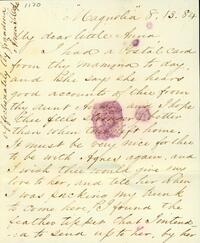 1170
affectionately thy Grandma
"Magnolia" 8. 13. 84
My dear little Anna
I had a Postal Card
from thy mamma to day,
and she say she hears
good accounts of thee from
thy aunt and I hope
thee feels stronger better
than when left home.
It must be very nice for thee
to be with Agnes again, and
I wish thee would give my
love to her, and tell her when
I was packing my trunk
to come here I found the
feather tippet that I intend-
ed to send up to her, by her